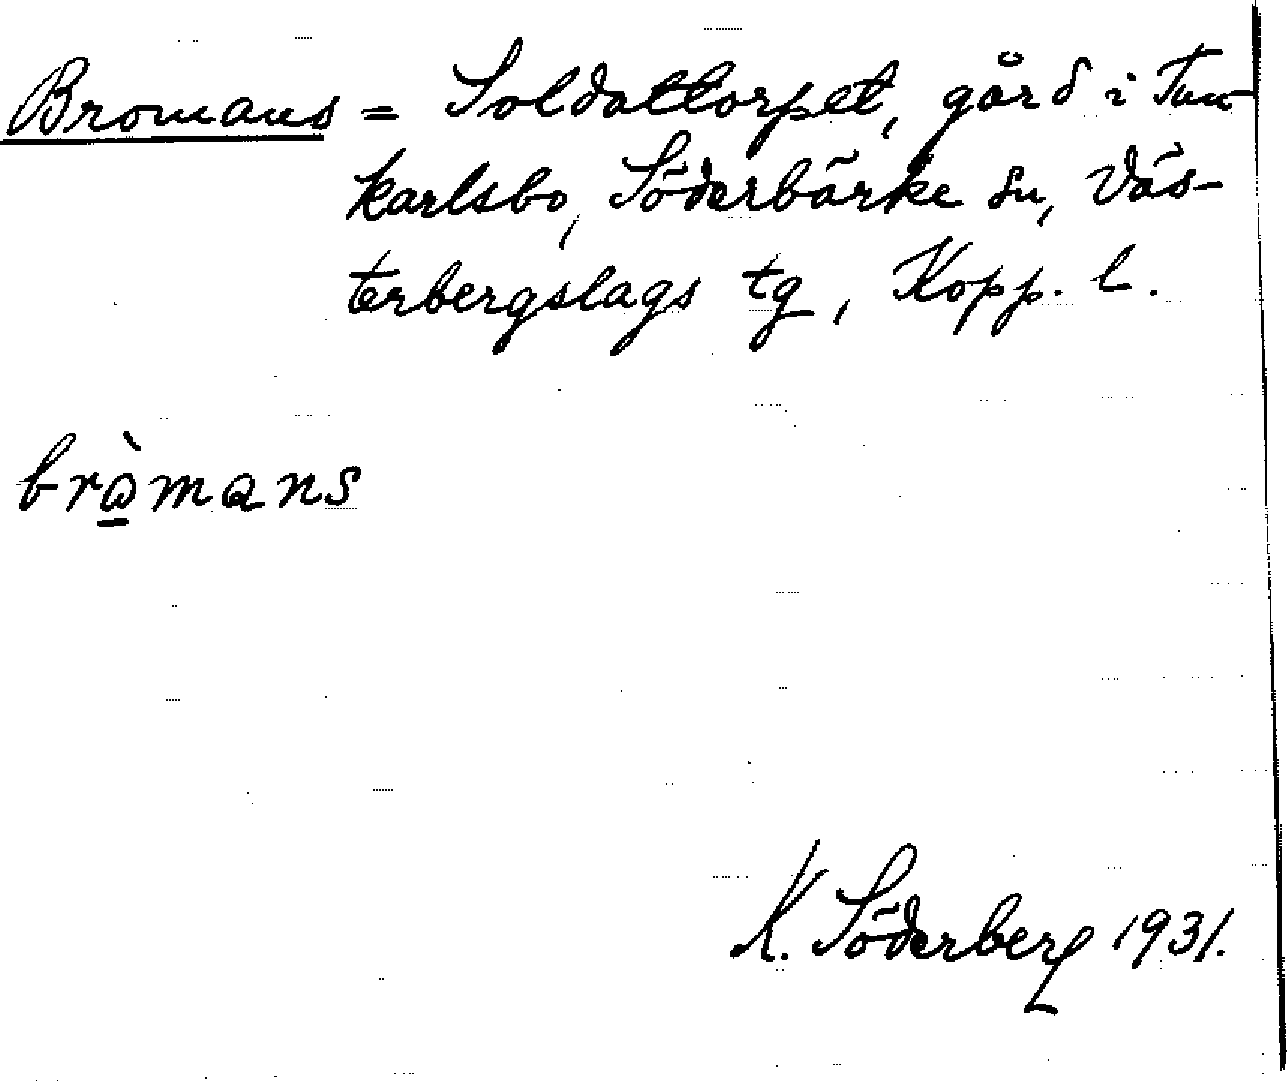 Bromans = Soldattorpet, gård i Tun-
karlsbo, Söderbärke sn, Väs-
terbergslags tg, Kopp. l.
bròmans
K. Söderberg 1931.